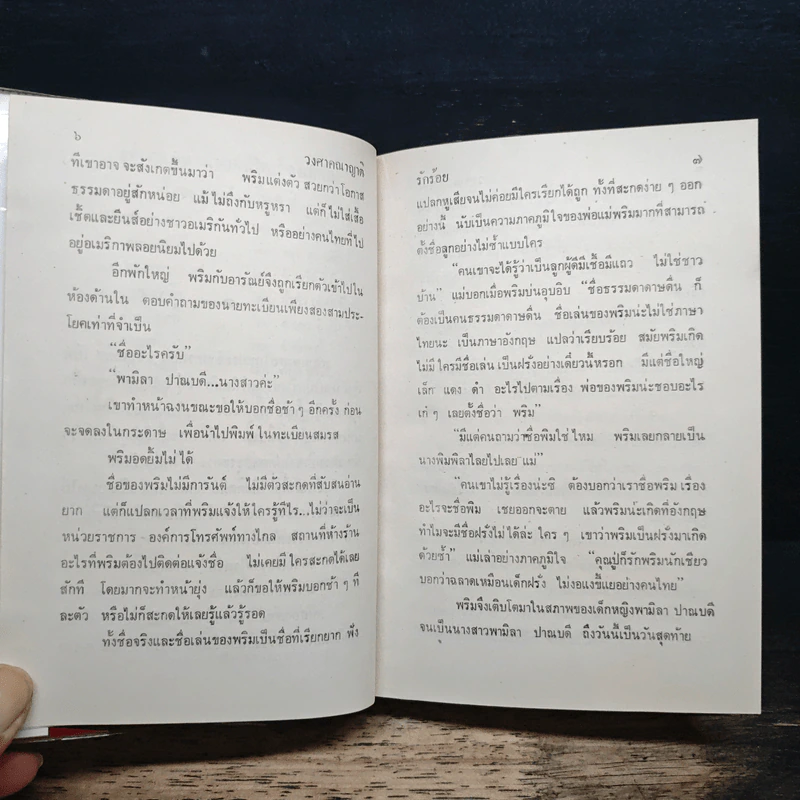 ๖
วงศาคณาญาติ
ที่เขาอาจ จะสังเกตขึ้นมาว่า พริมแต่งตัว สวยกว่าโอกาส
ธรรมดาอยู่สักหน่อย แม้ ไม่ถึงกับหรูหรา แต่ก็ไม่ใส่เสื้อ
เชิ้ตและยีนส์อย่างชาวอเมริกันทั่วไป หรืออย่างคนไทยที่ไป
อยู่อเมริกาพลอยนิยมไปด้วย
อีกพักใหญ่ พริมกับอารัณย์จึงถูกเรียกตัวเข้าไปใน
ห้องด้านใน ตอบคำถามของนายทะเบียนเพียงสองสามประ-
โยคเท่าที่จำเป็น
“ชื่ออะไรครับ”
“พามิลา ปาณบดี...นางสาวค่ะ”
เขาทำหน้าฉงนขณะขอให้บอกชื่อช้า ๆ อีกครั้ง ก่อน
จะจดลงในกระดาษ เพื่อนำไปพิมพ์ ในทะเบียนสมรส
พริมอดยิ้มไม่ ได้
ชื่อของพริมไม่มีการันต์ ไม่มีตัวสะกดที่สับสนอ่าน
ยาก แต่ก็แปลกเวลาที่พริมแจ้งให้ใครรู้ทีไร...ไม่ว่าจะเป็น
หน่วยราชการ องค์การโทรศัพท์ทางไกล สถานที่ห้างร้าน
อะไรที่พริมต้องไปติดต่อแจ้งชื่อ ไม่เคยมี ใครสะกดได้เลย
สักที โดยมากจะทำหน้ายุ่ง แล้วก็ขอให้พริมบอกช้า ๆ ที
ละตัว หรือไม่ก็สะกดให้เลยรู้แล้วรู้รอด
ทั้งชื่อจริงและชื่อเล่นของพริมเป็นชื่อที่เรียกยาก ฟัง
รักร้อย
๗
แปลกหูเสียจนไม่ค่อยมีใครเรียกได้ถูก ทั้งที่สะกดง่าย ๆ ออก
อย่างนี้ นับเป็นความภาคภูมิใจของพ่อแม่พริมมากที่สามารถ
ตั้งชื่อลูกอย่างไม่ซ้ำแบบใคร
“คนเขาจะได้รู้ว่าเป็นลูกผู้ดีมีเชื้อมีแถว ไม่ใช่ชาว
บ้าน” แม่บอกเมื่อพริมบ่นอุบอิบ “ชื่อธรรมดาดาษดื่น ก็
ต้องเป็นคนธรรมดาดาษดื่น ชื่อเล่นของพริมน่ะไม่ใช่ภาษา
ไทยนะ เป็นภาษาอังกฤษ แปลว่าเรียบร้อย สมัยพริมเกิด
ไม่มี ใครมีชื่อเล่น เป็นฝรั่งอย่างเดี๋ยวนี้หรอก มีแต่ชื่อใหญ่
เล็ก แดง ดำ อะไรไปตามเรื่อง พ่อของพริมน่ะชอบอะไร
เก๋ ๆ เลยตั้งชื่อว่า พริม”
“มีแต่คนถามว่าชื่อพิมใช่ ไหม พริมเลยกลายเป็น
นางพิมพิลาไลยไปเลย แม่”
“คนเขาไม่รู้เรื่องน่ะซิ ต้องบอกว่าเราชื่อพริม เรื่อง
อะไรจะชื่อพิม เชยออกจะตาย แล้วพริมน่ะเกิดที่อังกฤษ
ทำไมจะมีชื่อฝรั่งไม่ได้ล่ะ ใคร ๆ เขาว่าพริมเป็นฝรั่งมาเกิด
ด้วยซ้ำ” แม่เล่าอย่างภาคภูมิใจ “คุณปู่ก็รักพริมนักเชียว
บอกว่าฉลาดเหมือนเด็กฝรั่ง ไม่งอแงขี้แยอย่างคนไทย”
พริมจึงเติบโตมาในสภาพของเด็กหญิงพามิลา ปาณบดี
จนเป็นนางสาวพามิลา ปาณบดี ถึงวันนี้เป็นวันสุดท้าย